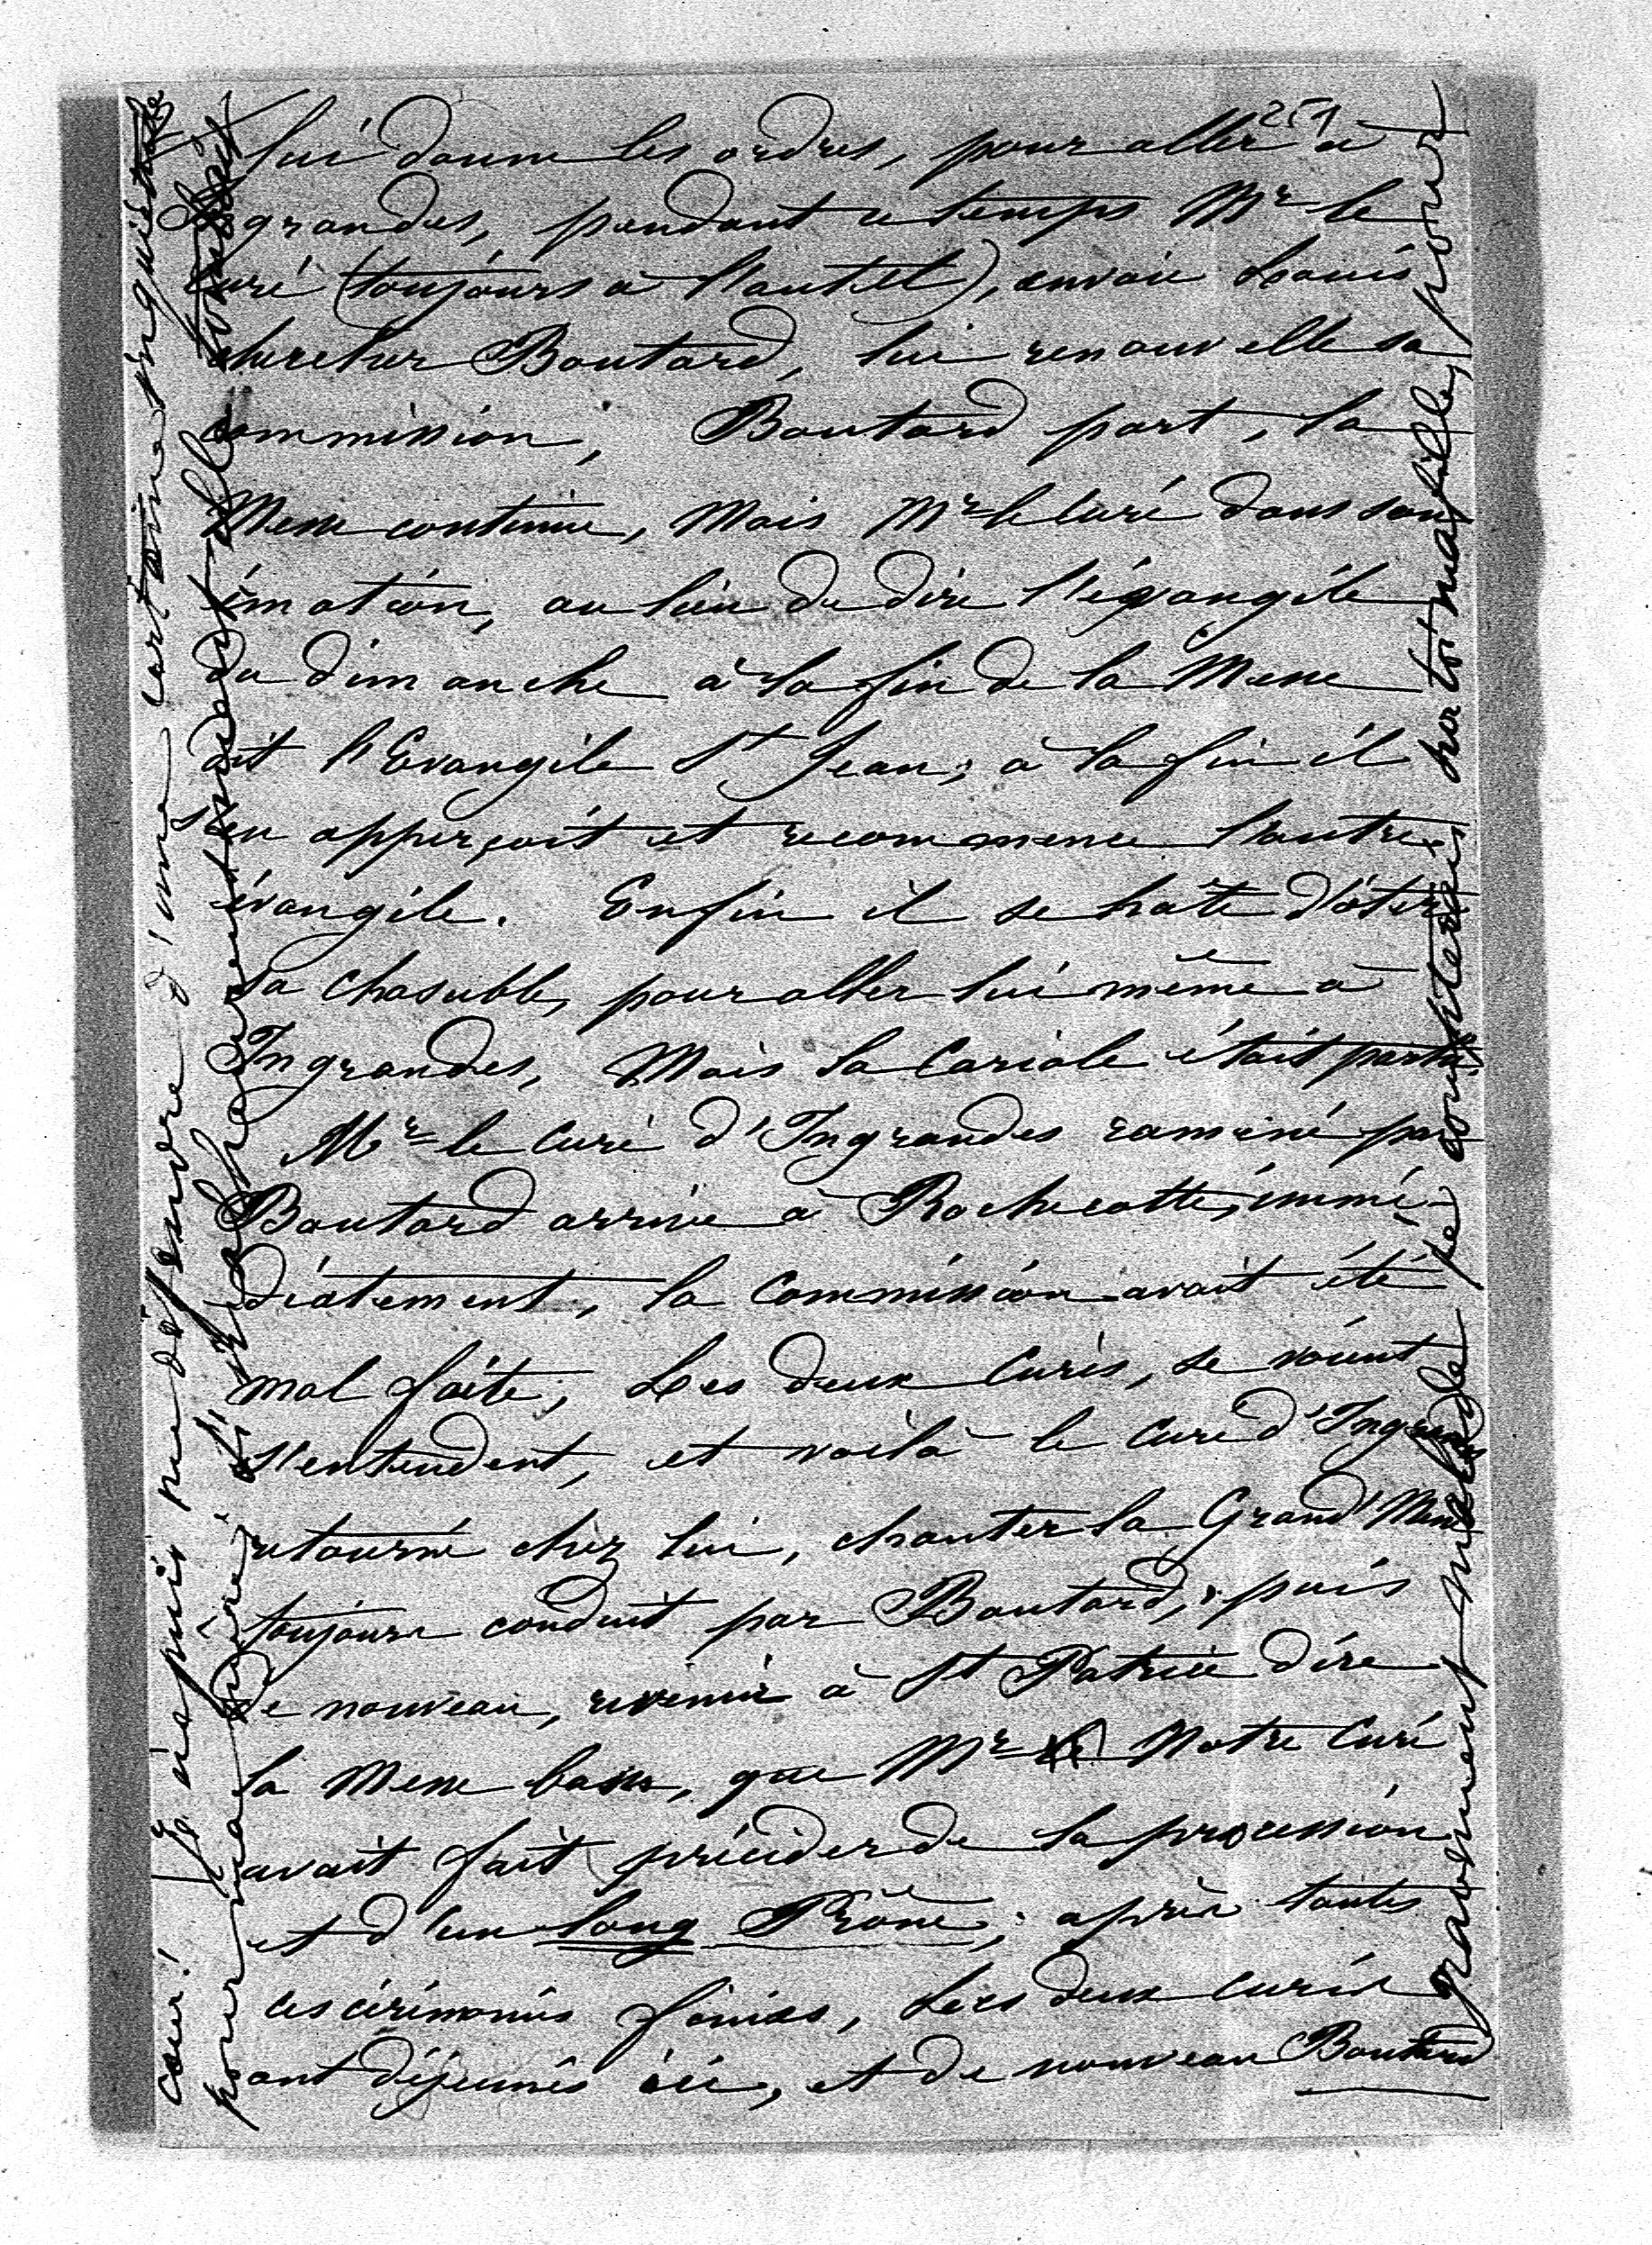 251
lui donne les ordres, pour aller à
Ingrandes, pendant ce temps Mr le
curé (toujours à l'autel), envoie Louis
chercher Boutard, lui renouvelle sa
commission, Boutard part, la
Messe continue, Mais Mr le Curé dans son
émotion, au lieu de dire l'évangile
du dimanche à la fin de la Messe
dit l'Evangile St Jean; à la fin il
s'en apperçoit et recommence l'autre
évangile. Enfin il se hâte d'ôter
sa chasuble, pour aller lui même à
Ingrandes, Mais la Cariole était partie.
Mr le Curé d'Ingrandes ramené par
Boutard arrive à Rochecotte, immé-
diatement, la Commission avait été
mal faite; Les deux Curés, se voient
s'entendent, et voilà le Curé d'Ingrandes
retourné chez lui, chanter la Grand'Messe
toujours conduit par Boutard; puis
de nouveau, revenir à St Patrice dire
la Messe basse, que Mr Notre Curé
avait fait précéder de la procession
et d'un long Prône; après toutes
ces cérémonies finies, Les deux curés
ont déjeunés ici, et de nouveau Boutard
gravement malade, je compte sur toi ma fille, pour
pour ma mère,
coeur! Je n'ai pu me défendre d'une certaine inquiétude